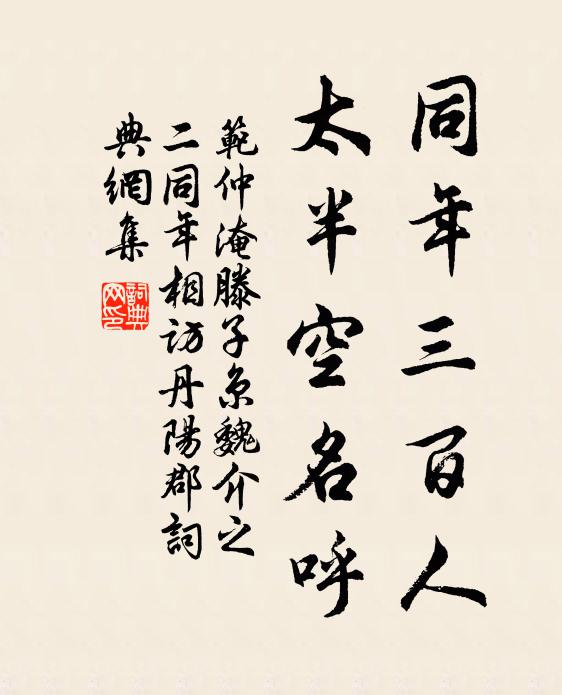 同年三百人
太半空名呼
範仲淹滕子京魏介之
二同年相访丹陽郡詞
典網集
詞典
网印